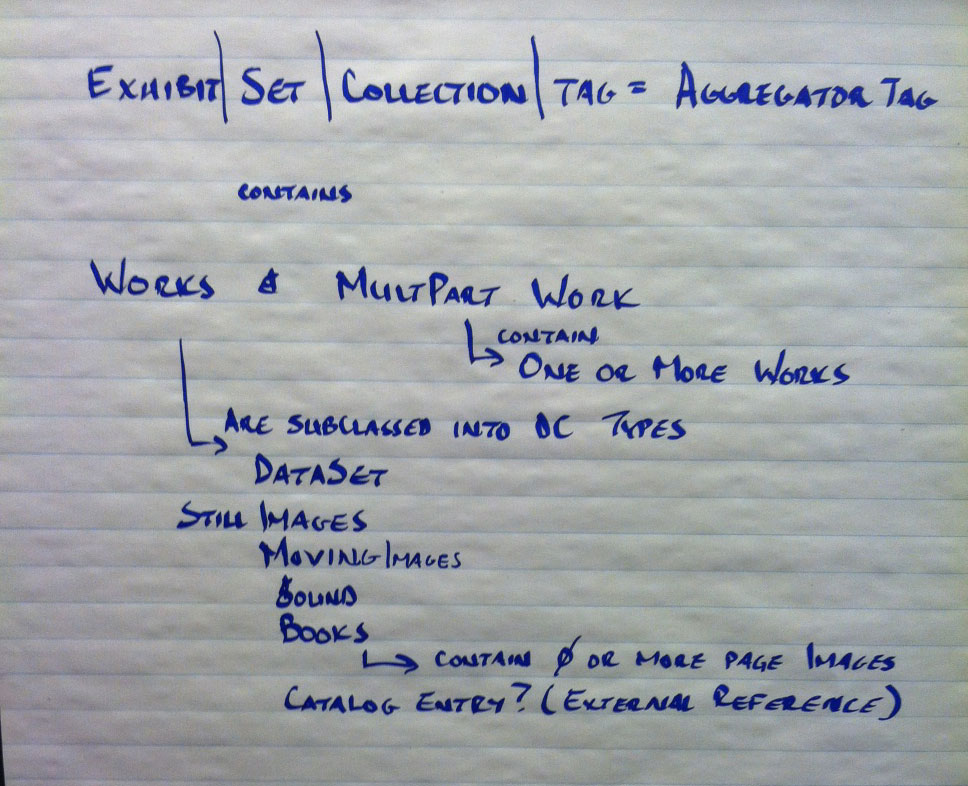 EXHIBIT | SET | COLLECTION | TAG = AGGREGATOR TAG
CONTAINS
WORKS & MULTPART WORK
CONTAIN
ONE OR MORE WORKS
ARE SUBCLASSED INTO DC TYPES
DATASET
STILL IMAGES
MOVING IMAGES
SOUND
BOOKS
CONTAIN Ø OR MORE PAGE IMAGES
CATALOG ENTRY? (EXTERNAL REFERENCE)